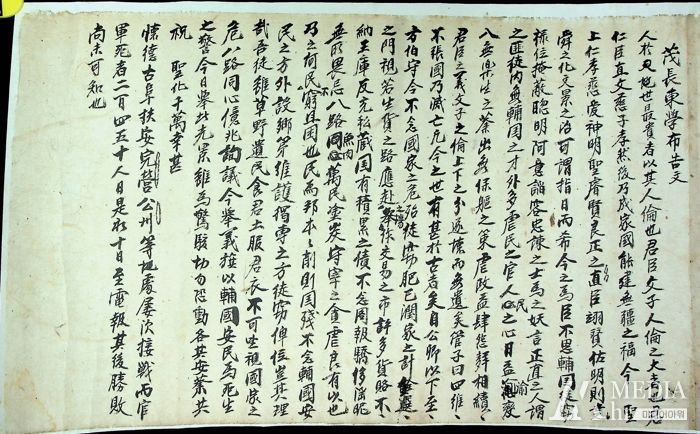 茂長東學布告文
人於天地世最貴者以其人倫也君臣父子人倫之大者也君
仁臣直父慈子孝然後乃成家國能逮無疆之福今我聖
上仁孝慈愛神明聖睿賢良正之直臣翊贊佐明則堯
舜之化文景之治可謂指日而希今之爲臣不思輔國
祿位掩蔽聰明阿意諂容忠諫之士爲之妖言正直之人謂
之匪徒內無輔國之才外多虐民之官人民之心日益渝變
入無樂生之業出無保軀之策虐政益肆惡聲相續
君臣之義父子之倫上下之分逆壞而無遺矣管子曰四維
不張國乃滅亡凡今之世有甚於古者矣自公卿以下至
方伯守令不念國家之危殆徒竊肥己潤家之計銓選
之門視若生貨之路應赴之場擧爲交易之市許多貨賂不
納王庫反充私藏國有積累之債不念圖報驕侈淫昵
無所畏忌八路魚肉萬民塗炭守宰之貪虐良有以也
乃之何民窮且困也民爲邦本本削則國殘不念輔國安
民之方外設鄕第維護獨專之方徒竊俸位豈其理
哉吾徒雖草野遺民食君土服君衣不可坐視國家之
危八路同心億兆詢議今擧義旗以輔國安民爲死生
之誓今日擧此光景雖爲驚駭切勿恐動各其安業共
祝聖化千萬幸甚
懷德古阜扶安完營公州等地處屢次接戰而官
軍死者二百四五十人日是如十日至電報其後勝敗
尙未可知也
MEDIA
미디어아워